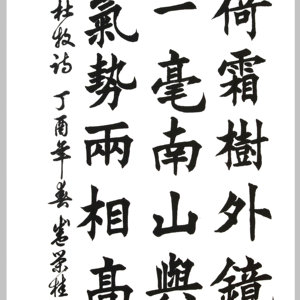 倚霜樹外鏡
一毫南山與
氣勢兩相高
杜牧诗 丁酉年春 荣桂